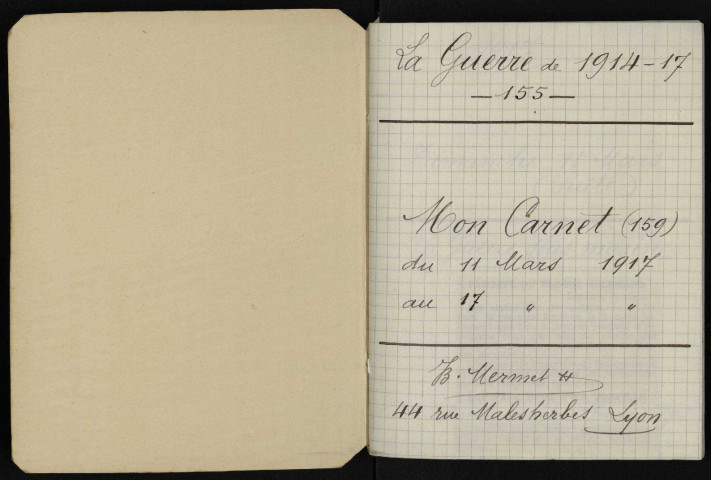 La Guerre de 1914-17
—155—
Mon Carnet (159)
du 11 Mars 1917
au 17 " "
B. Mermet
44 rue Malesherbes Lyon